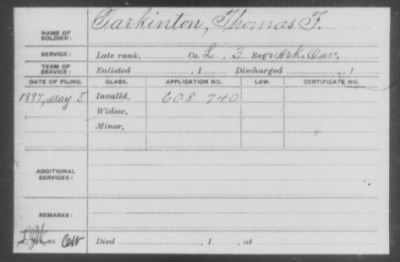 NAME OF SOLDIER: Tarkinton, Thomas F.
SERVICE: Late rank, Co. L, 3 Reg't Ark. Cav.
TERM OF SERVICE: Enlisted , 1 Discharged , 1
DATE OF FILING. CLASS. APPLICATION NO. LAW. CERTIFICATE NO.
1897, May 5 Invalid, 608 740
Widow,
Minor,
ADDITIONAL SERVICES:
REMARKS:
Died , 1 , at